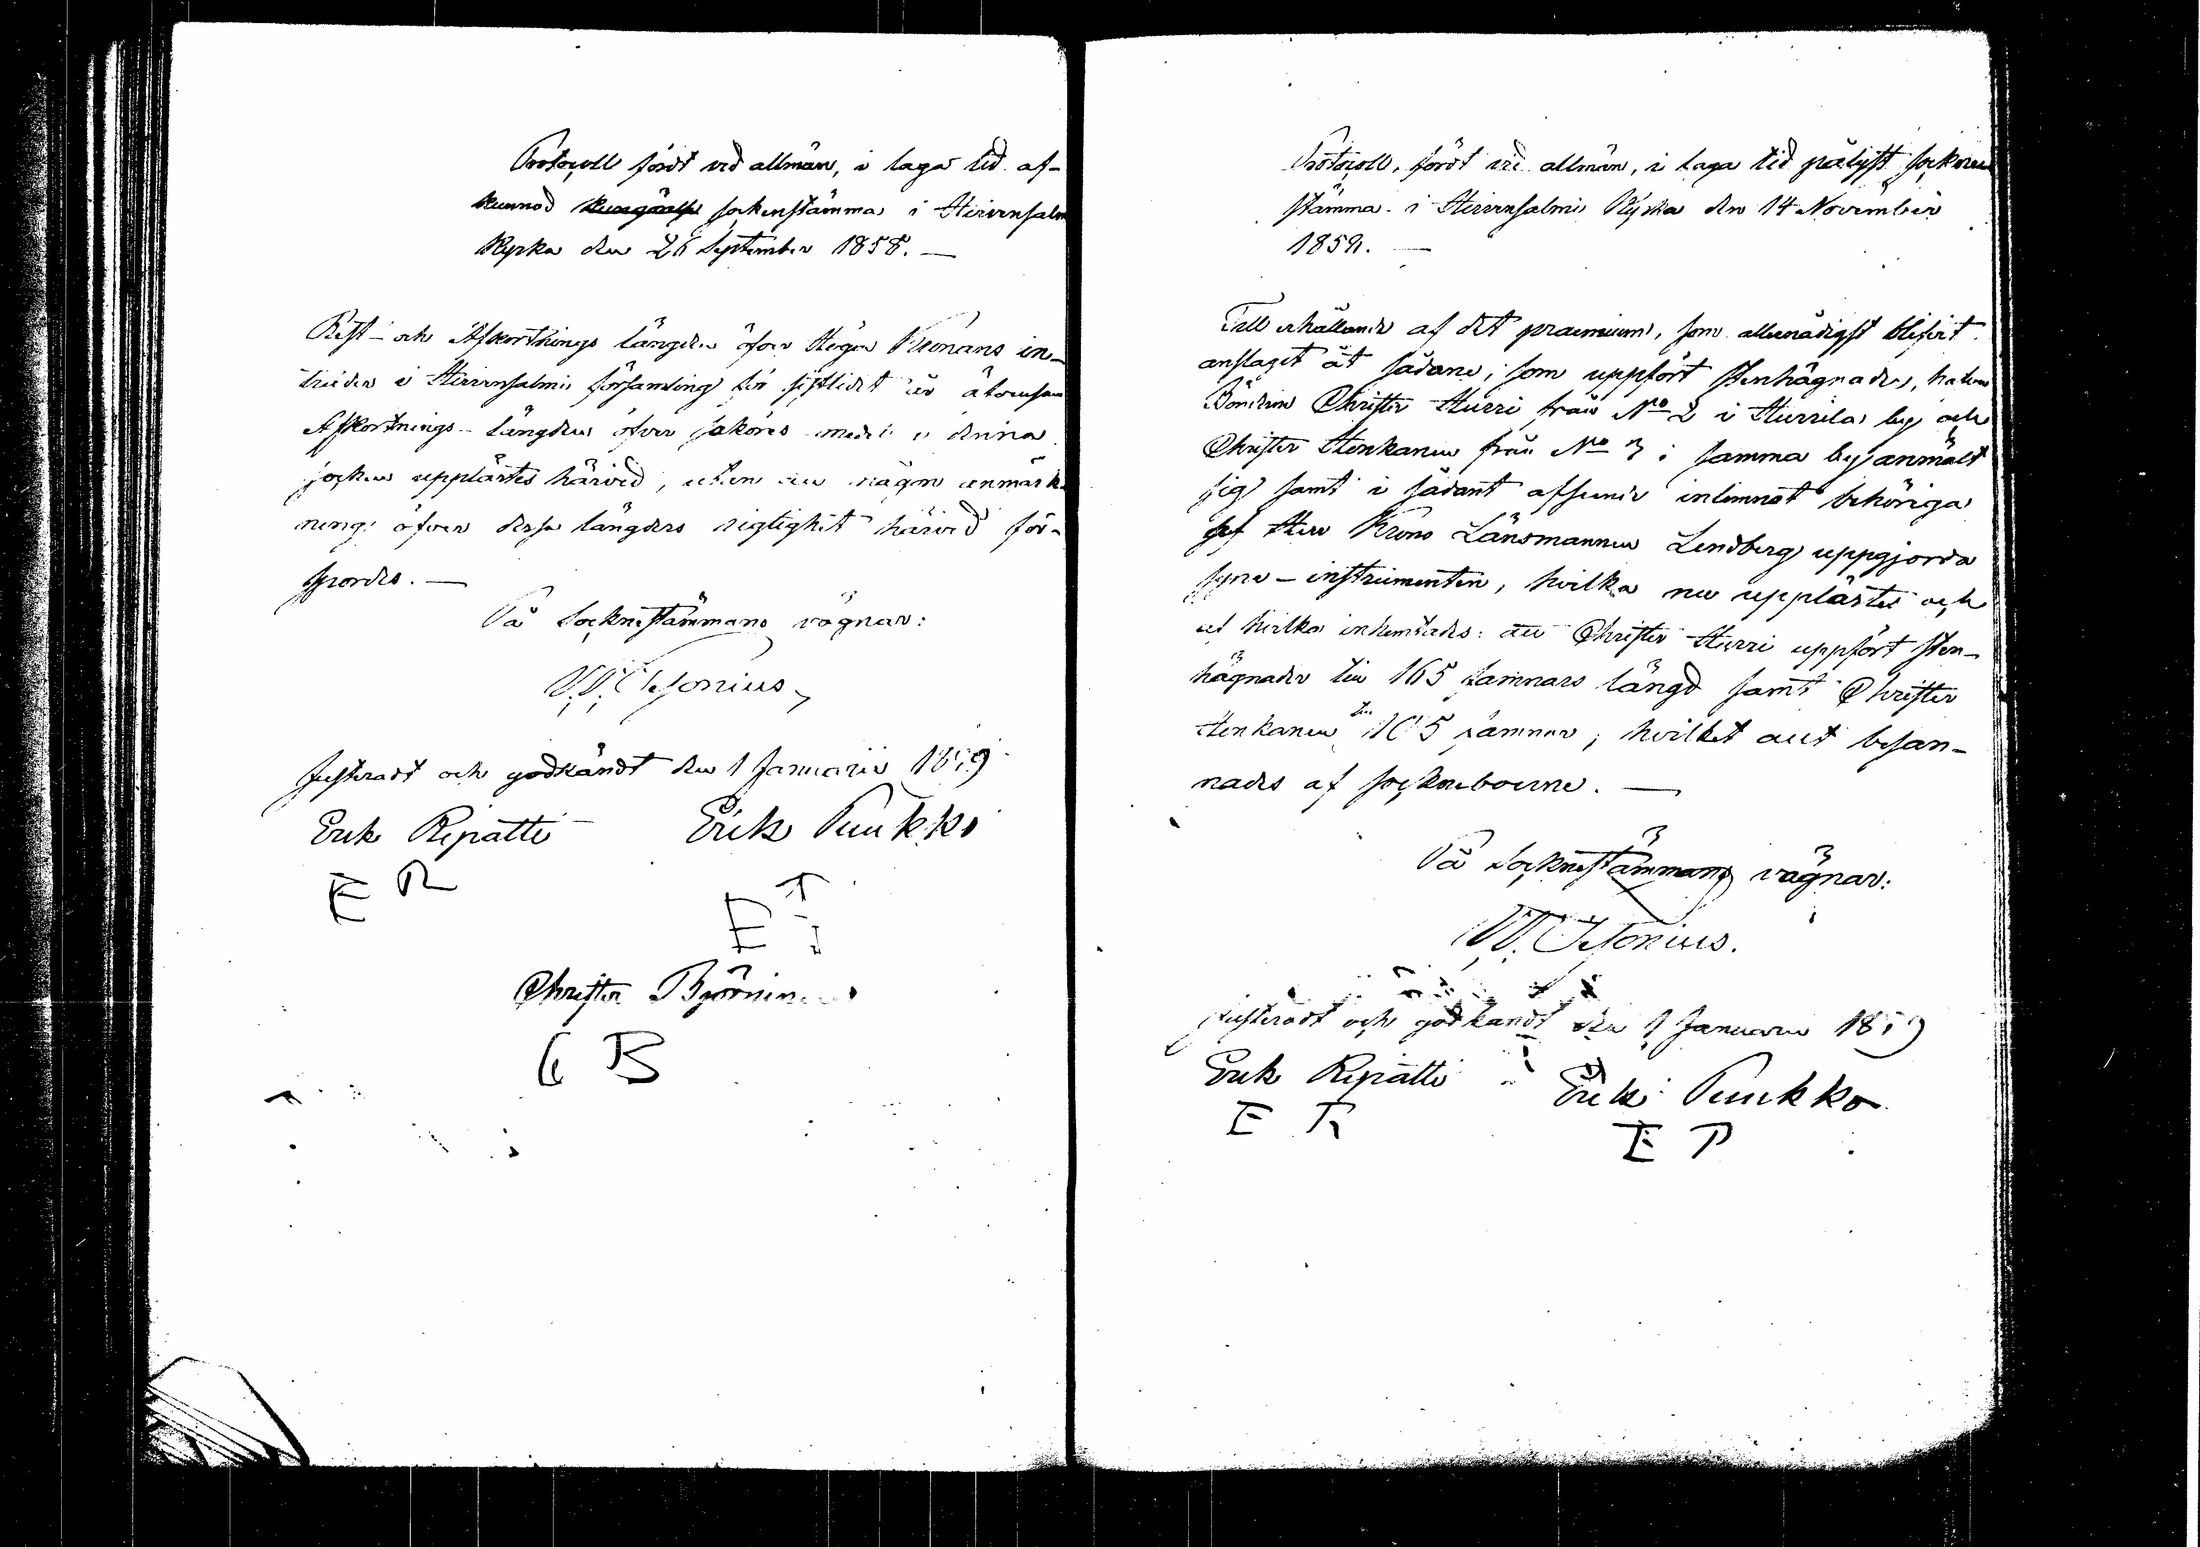 Protocoll fördt vid allmän, i laga tid af-
kunnad sockenstämma i Hirvensalmi
Kyrka den 26 September 1858. —
Rest- och Afkortnings längden öfver Höga Kronans in-
träder i Hirvensalmi församling för sistlidet år äfvensom
Afkortnings-längden öfver sakören medel i denna
socken upplästes härvid, utan att någon anmärk-
ning öfver dessa längders rigtighet härvid för-
sporдes. —
På Socknestämmans vägnar:
W. Telonius
Justeradt och godkändt den 1 Januarii 1859
Erik Repatti Erik Puukko
E R
E P
Christer Björninen
C B
Protocoll, fördt vid allmän, i laga tid pålyst socken
stämma i Hirvensalmi Kyrka den 14 November
1858. —
Till erhållande af det praemium, som allernådigst blifvit
anslaget åt sådane, som uppfört stenhägnader, hafva
Bönderne Christer Hurri från No 2 i Hurrila by och
Christer Henkanen från No 3 i samma by anmält
sig samt i sådant afseende inlemnat behöriga
af Herr Krono Länsmannen Lindberg uppgjorda
syne-instrumenten, hvilka nu upplästes och
af hvilka inhemtades: att Christer Hurri uppfört sten-
hägnader till 165 famnars längd samt Christer
Henkanen till 105 famnar; hvilket allt besan-
nades af sockneboerne. —
På Socknestämmans vägnar:
W. Telonius.
Justeradt och godkändt den 1 Januarii 1859
Erik Repatti Erik Puukko
E R
E P